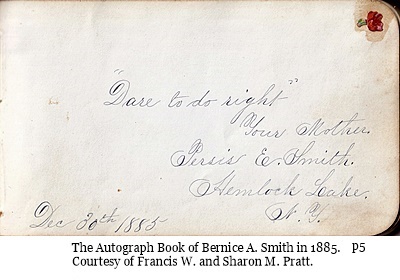 "Dare to do right"
Your Mother.
Persis E. Smith.
Hemlock Lake.
N. Y.
Dec 30th 1885
The Autograph Book of Bernice A. Smith in 1885. P5
Courtesy of Francis W. and Sharon M. Pratt.